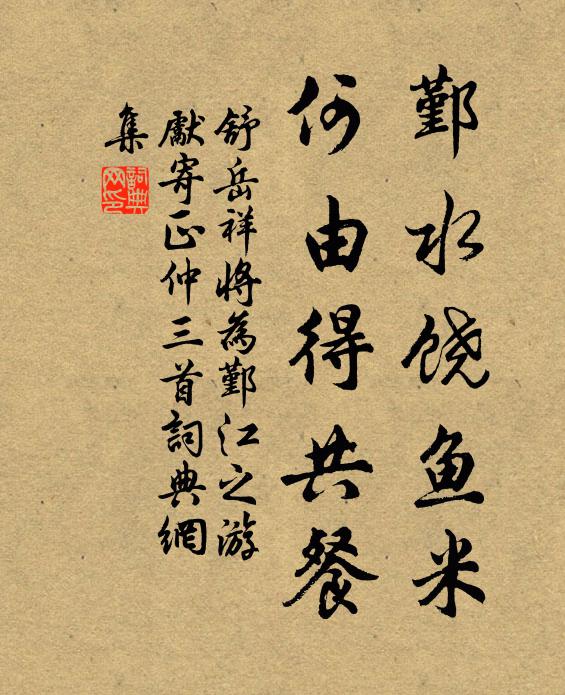 鄞水饶鱼米
何由得共餐
舒岳祥将為鄞江之游
獻寄正仲三首詞典網
集
詞典网印